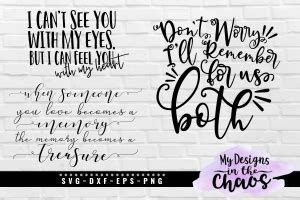 I CAN'T SEE YOU
WITH MY EYES.
BUT I CAN FEEL YOU
with my heart
when someone
you love becomes a
memory
the memory becomes a
treasure
Don't Worry!
I'll Remember
for us
both
SVG-DXF-EPS-PNG
My Designs
in the
CHAOS